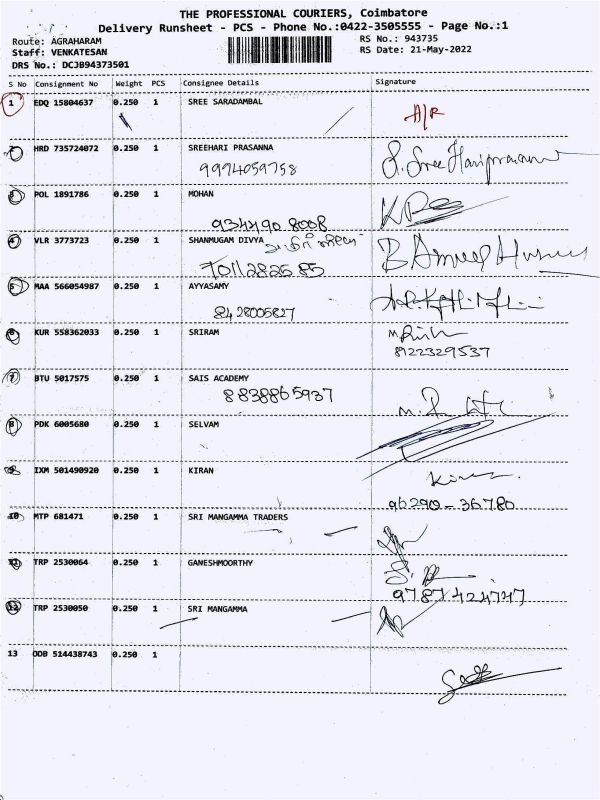 THE PROFESSIONAL COURIERS, Coimbatore
Delivery Runsheet - PCS - Phone No.:0422-3505555 - Page No.:1
Route: AGRAHARAM RS No.: 943735
Staff: VENKATESAN RS Date: 21-May-2022
DRS No.: DCJB94373501
S No Consignment No Weight PCS Consignee Details Signature
1 EDQ 15804637 0.250 1 SREE SARADAMBAL
A/R
2 HRD 735724072 0.250 1 SREEHARI PRASANNA
9994059758
3 POL 1891786 0.250 1 MOHAN
4 VLR 3773723 0.250 1 SHANMUGAM DIVYA
7011282685
5 MAA 566054987 0.250 1 AYYASAMY
8428006827
6 KUR 558362033 0.250 1 SRIRAM
8122329537
7 BTU 5017575 0.250 1 SAIS ACADEMY
8838865937
8 PDK 6005680 0.250 1 SELVAM
9 IXM 501490920 0.250 1 KIRAN
96290-36780
10 MTP 681471 0.250 1 SRI MANGAMMA TRADERS
11 TRP 2530064 0.250 1 GANESHMOORTHY
9787424747
12 TRP 2530050 0.250 1 SRI MANGAMMA
13 ODB 514438743 0.250 1